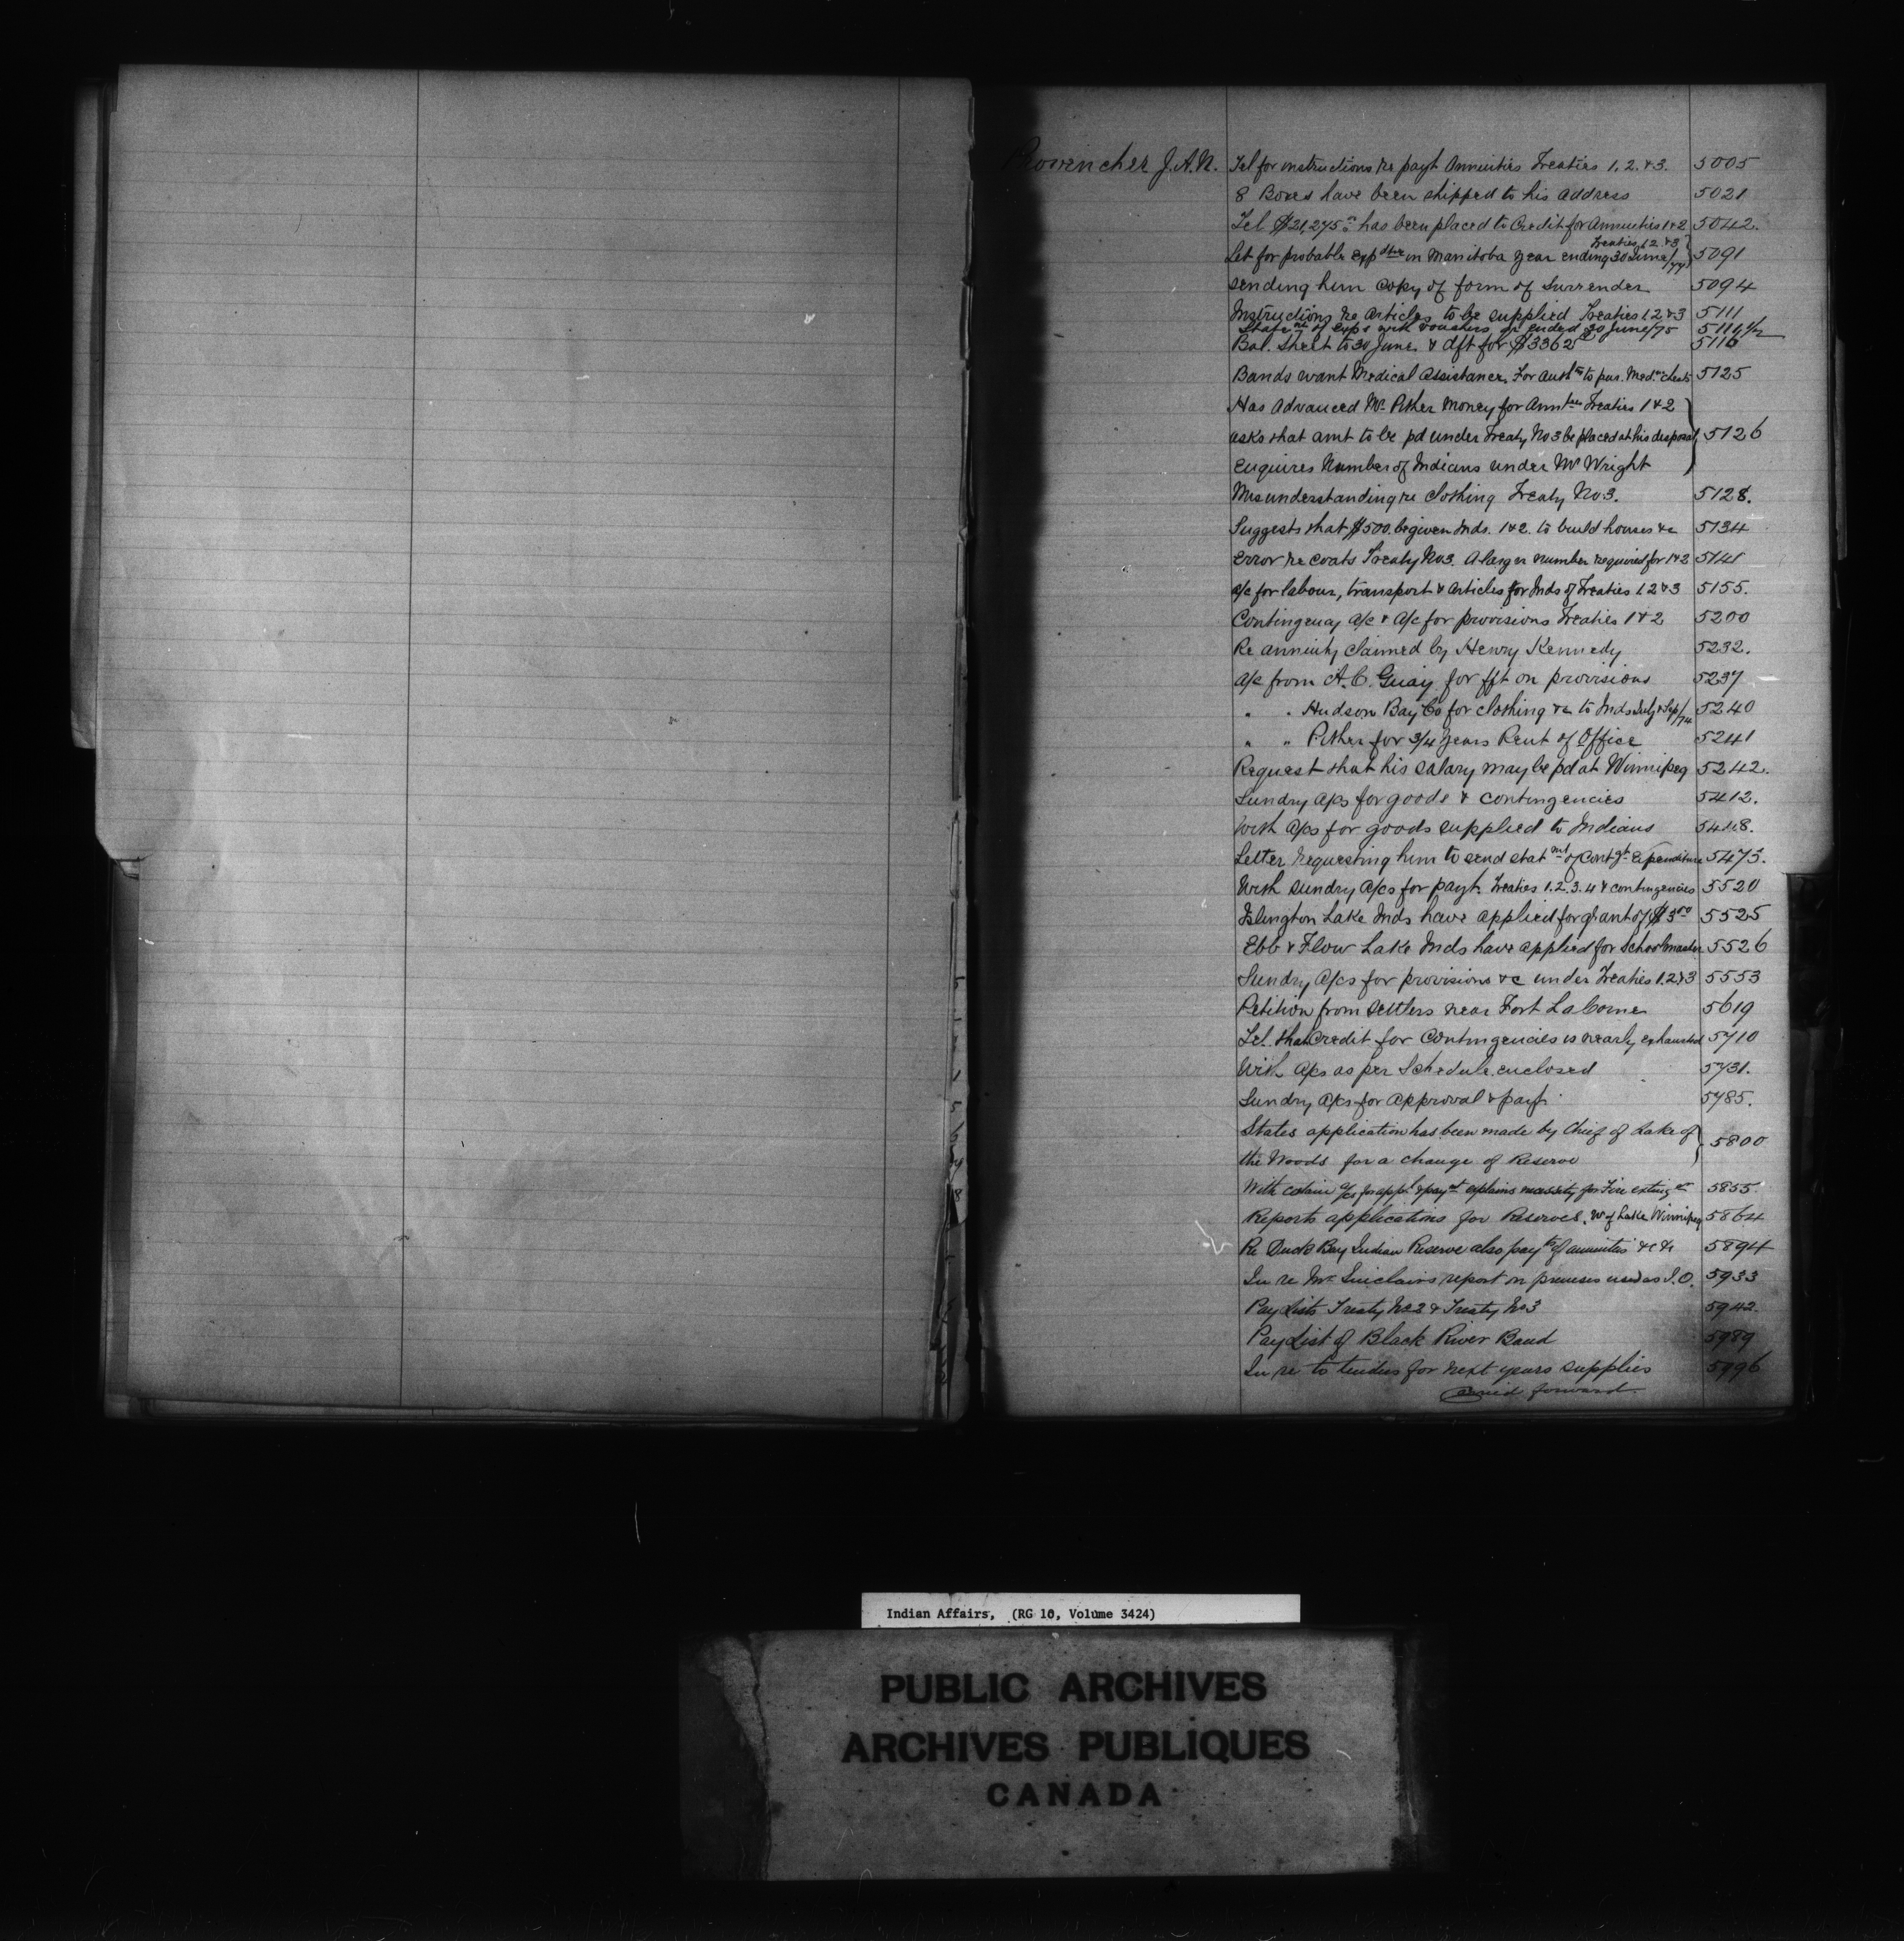 Provencher J.A.N. Tel for instructions re payt Annuities Treaties 1.2.&3. 5005
8 Boxes have been shipped to his address 5021
Tel $21,275 has been placed to Credit for Annuities 1&2 5042.
Treaties 1.2.&3
Let for probable expdture in Manitoba year ending 30 June/77 5091
Sending him Copy of form of Surrender 5094
Instructions re Articles to be supplied Treaties 1.2&3 5111
Statemt of exps with vouchers yr ended 30 June/75 5111½
Bal. Sheet to 30 June & dft for $3362 5116
Bands want Medical Assistance. For Authty to pur. Med. chests 5125
Has Advanced Mr Pither money for Annties Treaties 1&2
asks that amt to be pd under Treaty No 3 be placed at his disposal 5126
Enquires Number of Indians under Mr Wright
Misunderstanding re clothing Treaty No 3. 5128.
Suggests that $500. be given Inds. 1&2. to build houses &c 5134
Error re coats Treaty No 3. A larger number required for 1&2 5141
a/c for labour, transport & articles for Inds of Treaties 1.2&3 5155.
Contingency a/c & A/c for provisions Treaties 1&2 5200
Re annuity claimed by Henry Kennedy 5232.
a/c from A.C. Guay for fft on provisions 5237
" " Hudson Bay Co for clothing &c to Inds July & Sep/74 5240
" " Pither for 3/4 years Rent of Office 5241
Request that his salary may be pd at Winnipeg 5242.
Sundry a/cs for goods & contingencies 5412.
With a/cs for goods supplied to Indians 5448.
Letter requesting him to send statmt of Contgt Expenditure 5475.
With sundry a/cs for payt. Treaties 1.2.3.4 & contingencies 5520
Islington Lake Inds have applied for grant of $3 5525
Ebb & Flow Lake Inds have applied for Schoolmaster 5526
Sundry a/cs for provisions &c under Treaties 1.2&3 5553
Petition from settlers near Fort La Corne 5619
Tel. that Credit for Contingencies is nearly exhausted 5710
With a/cs as per Schedule enclosed 5731.
Sundry a/cs for approval & payt. 5785.
States application has been made by Chief of Lake of
the Woods for a change of Reserve 5800
With certain a/cs for appl & paymt explains necessity for Fire exting er 5855
Reports applications for Reserves. W of Lake Winnipeg 5864
Re Duck Bay Indian Reserve also payts of annuities &c &c 5894
In re Mr Sinclairs report on premises used as I.O. 5933
Pay Lists Treaty No 2 & Treaty No 3 5942.
Pay List of Black River Band 5989
In re to tenders for next years supplies 5996
carried forward
Indian Affairs, (RG 10, Volume 3424)
PUBLIC ARCHIVES
ARCHIVES PUBLIQUES
CANADA